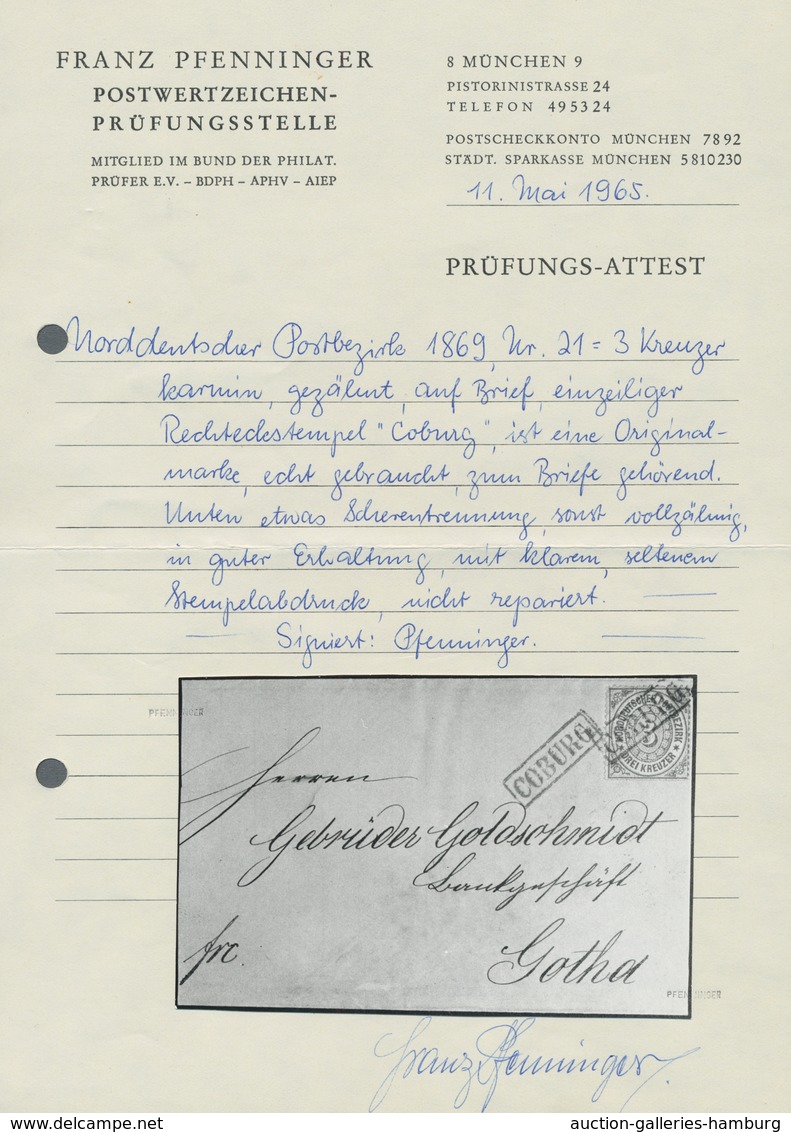 FRANZ PFENNINGER
POSTWERTZEICHEN-
PRÜFUNGSSTELLE
MITGLIED IM BUND DER PHILAT.
PRÜFER E.V. – BDPH – APHV – AIEP
8 MÜNCHEN 9
PISTORINISTRASSE 24
TELEFON 495324
POSTSCHECKKONTO MÜNCHEN 7892
STÄDT. SPARKASSE MÜNCHEN 5810230
11. Mai 1965.
PRÜFUNGS-ATTEST
Norddeutscher Postbezirk 1869, Nr. 21 = 3 Kreuzer
karmin, gezähnt, auf Brief, einzeiliger
Rechteckstempel "Coburg", ist eine Original-
marke, echt gebraucht, zum Briefe gehörend.
Unten etwas Scherentrennung, sonst vollzähnig,
in guter Erhaltung, mit klarem, seltenem
Stempelabdruck, nicht repariert.
Signiert: Pfenninger.
PFENNINGER
NORDDEUTSCHER POSTBEZIRK
3
DREI KREUZER
COBURG
COBURG
Herren
Gebrüder Goldschmidt
Bankgeschäft
frc.
Gotha
PFENNINGER
Franz Pfenninger.
auction-galleries-hamburg